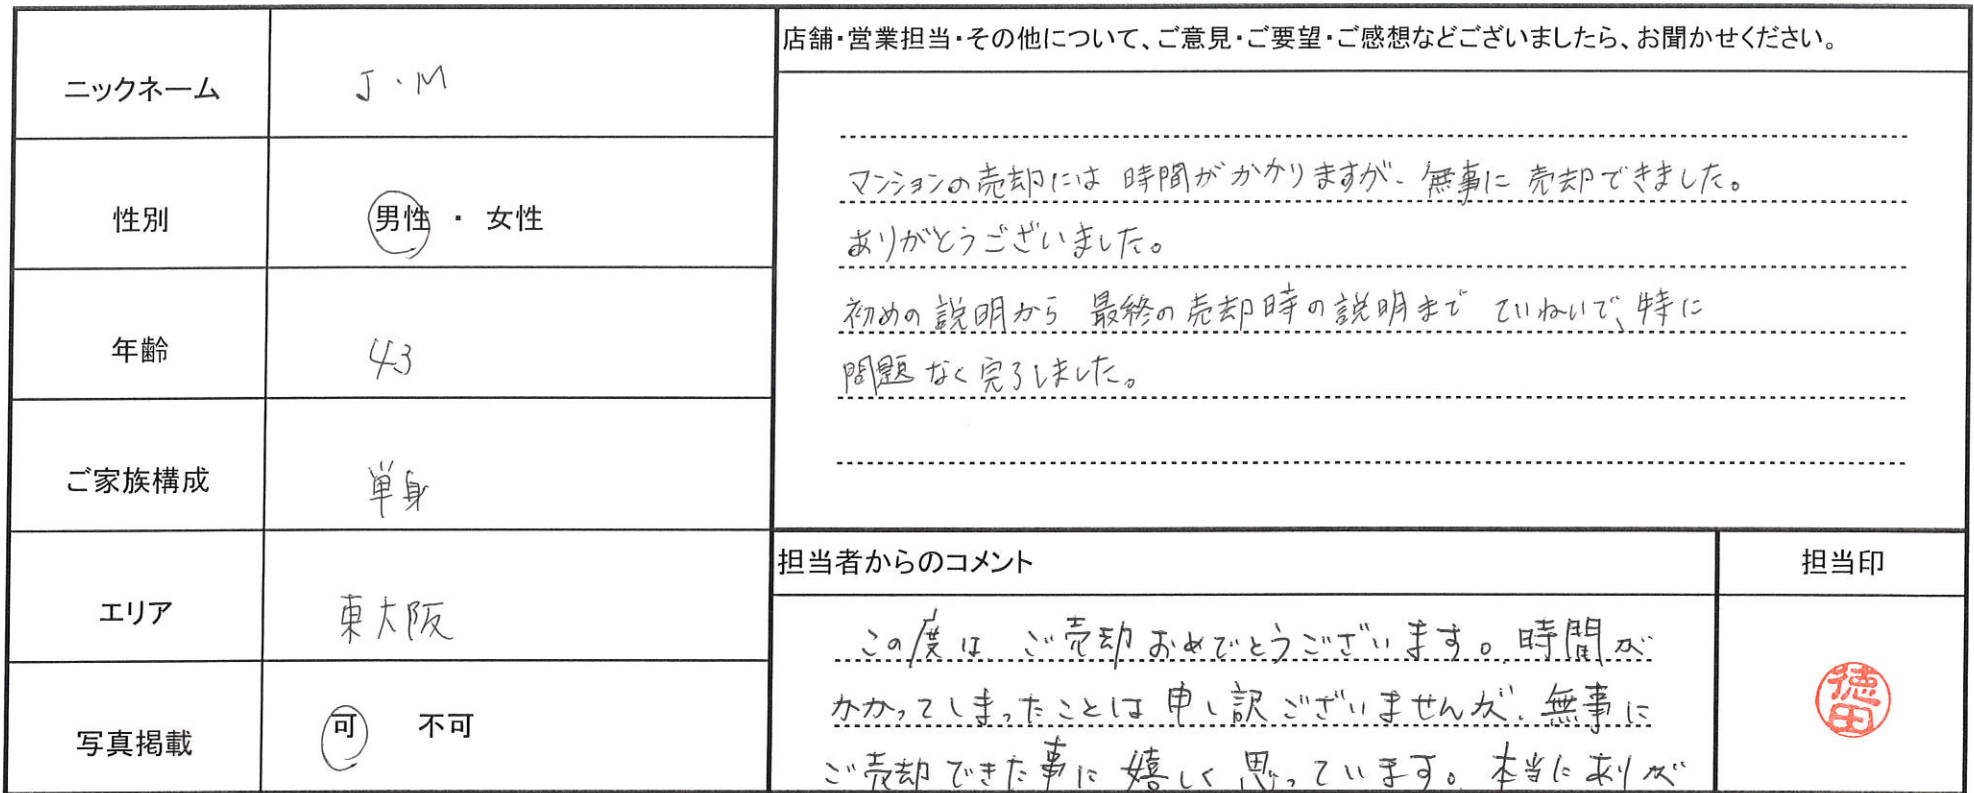 ニックネーム
J・M
性別
男性 ・ 女性
年齢
43
ご家族構成
単身
エリア
東大阪
写真掲載
可 不可
店舗・営業担当・その他について、ご意見・ご要望・ご感想などございましたら、お聞かせください。
マンションの売却には 時間がかかりますが、無事に 売却できました。
ありがとうございました。
初めの説明から 最終の売却時の説明まで ていねいで、特に
問題なく完了しました。
担当者からのコメント
この度は、ご売却おめでとうございます。時間が
かかってしまったことは申し訳ございませんが、無事に
ご売却できた事に嬉しく思っています。本当にありが
担当印
徳田